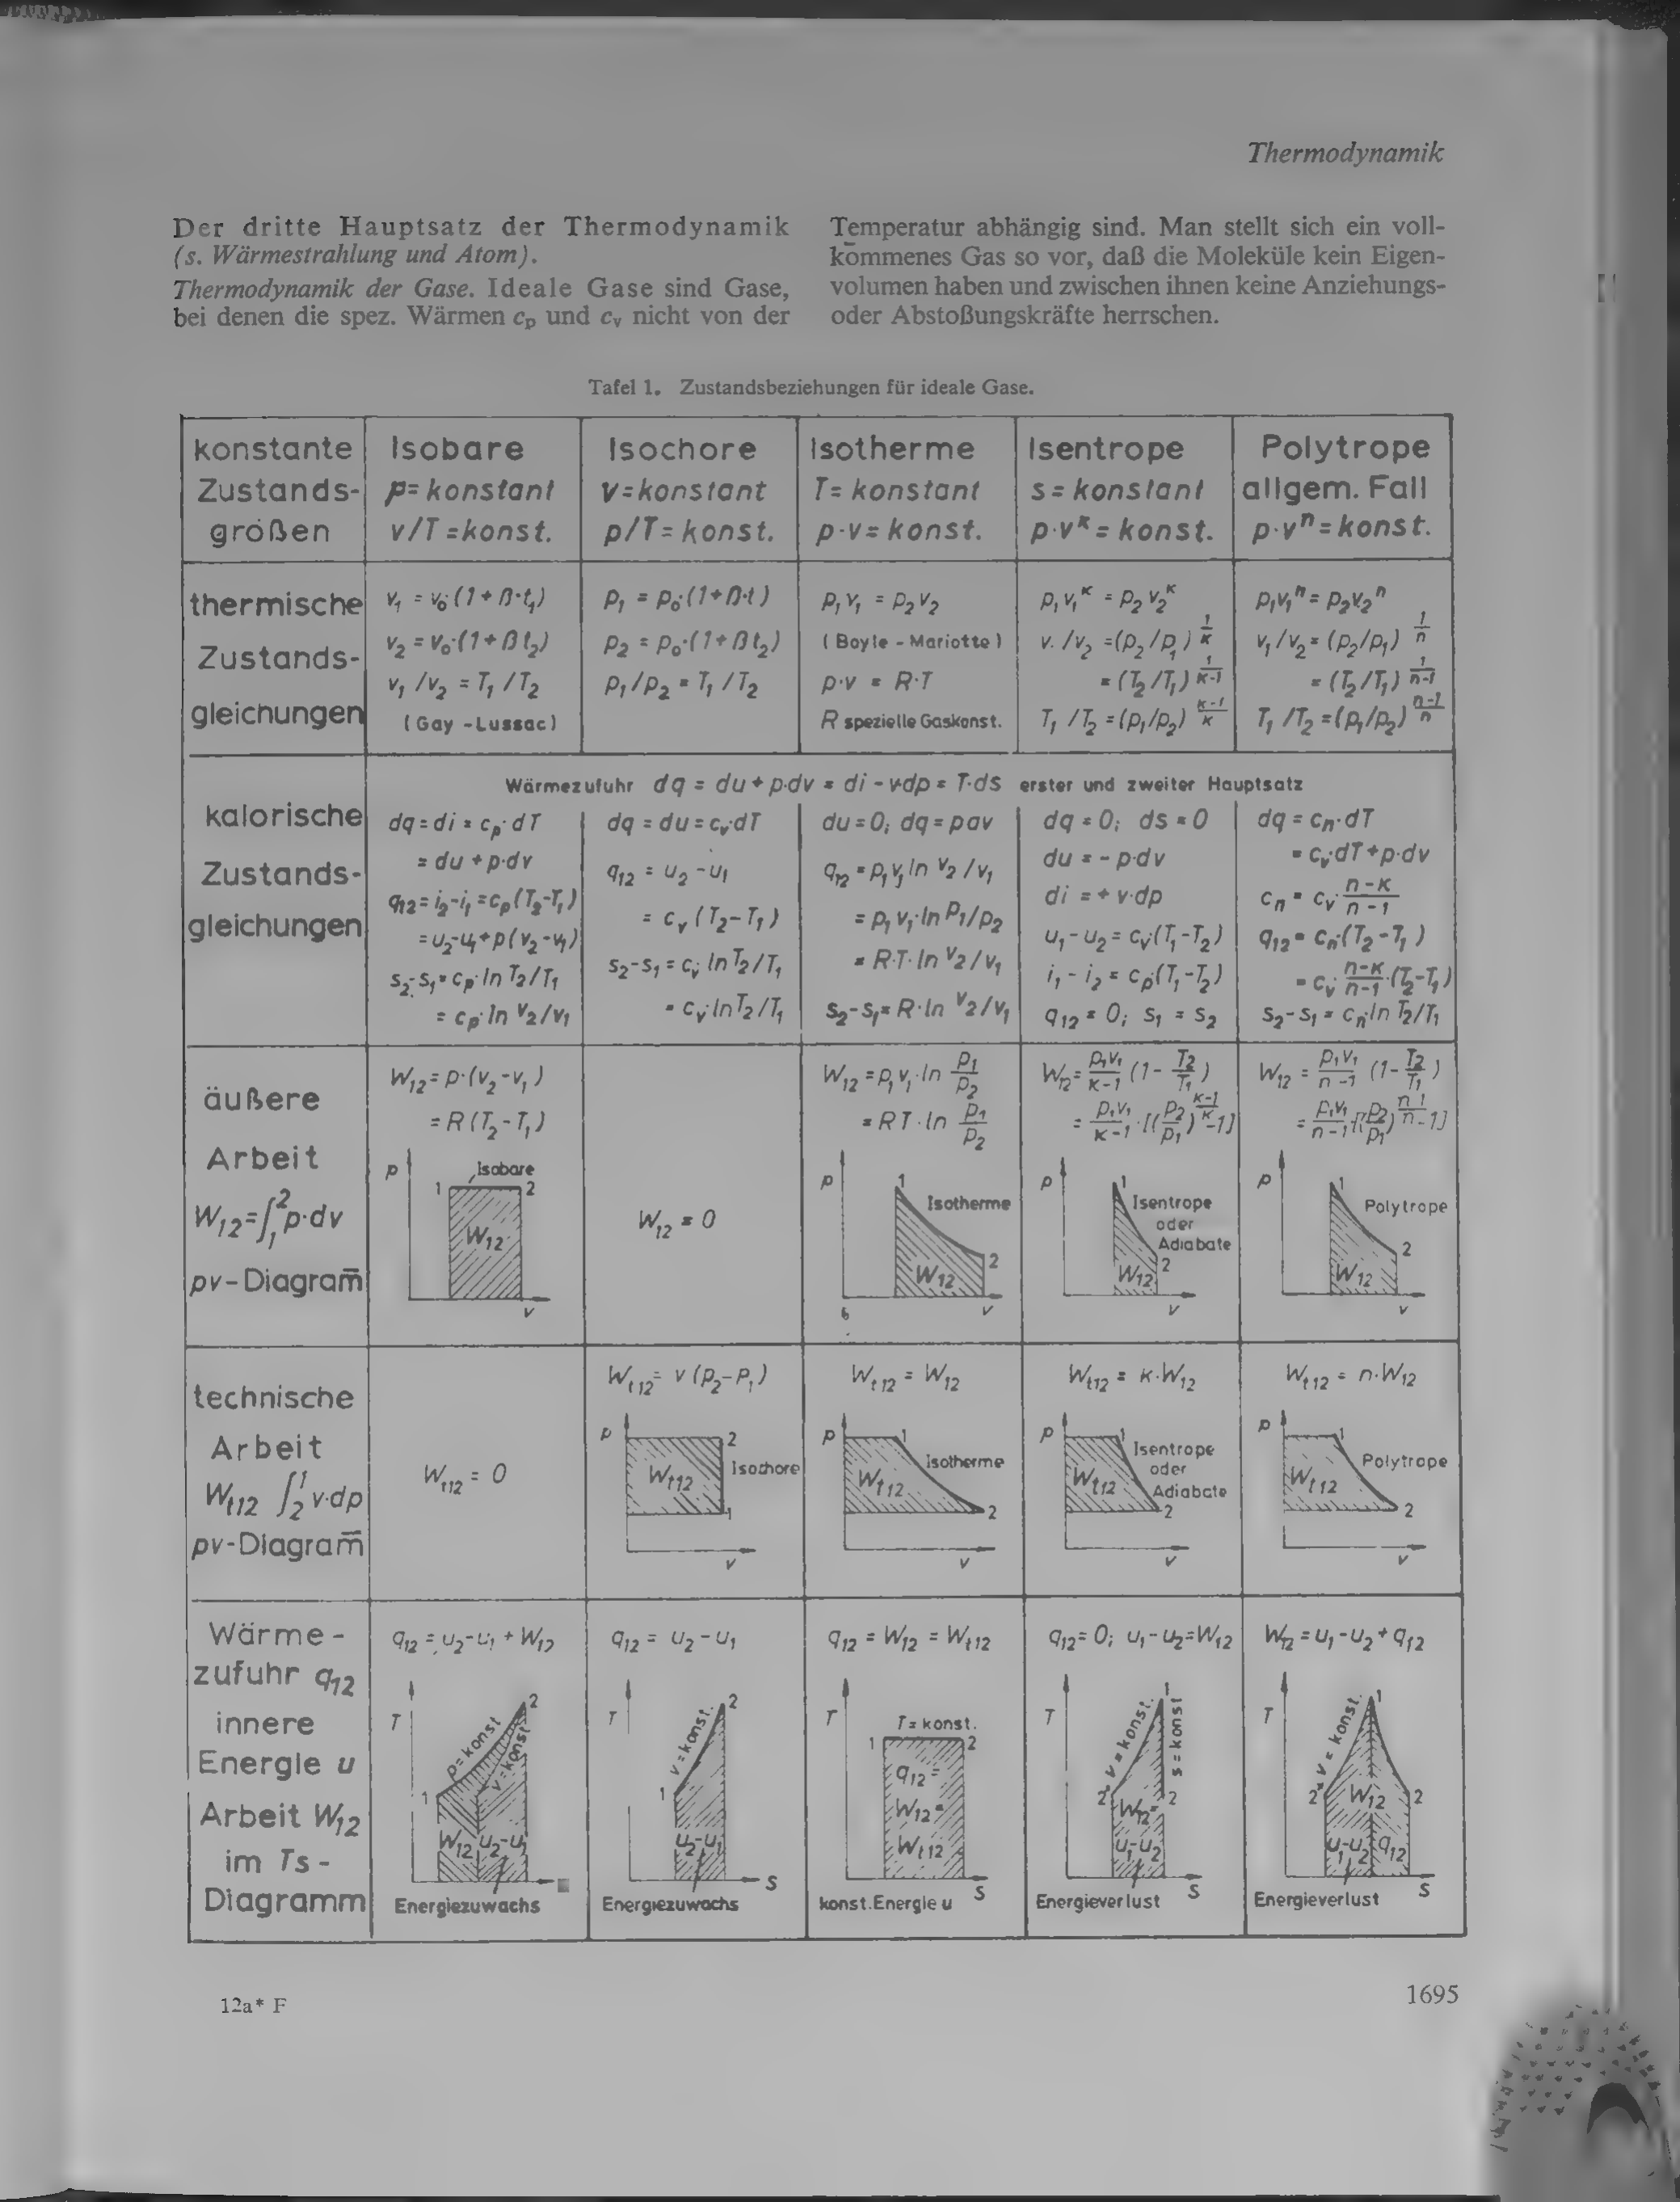 Thermodynamik
Der dritte Hauptsatz der Thermodynamik
(s. Wärmestrahlung und Atom).
Thermodynamik der Gase. Ideale Gase sind Gase,
bei denen die spez. Wärmen cp und cv nicht von der
Temperatur abhängig sind. Man stellt sich ein voll-
kommenes Gas so vor, daß die Moleküle kein Eigen-
volumen haben und zwischen ihnen keine Anziehungs-
oder Abstoßungskräfte herrschen.
Tafel 1. Zustandsbeziehungen für ideale Gase.
konstante
Zustands-
größen
Isobare
p = konstant
v/T = konst.
Isochore
v = konstant
p/T = konst.
Isotherme
T = konstant
p·v = konst.
Isentrope
s = konstant
p·v^κ = konst.
Polytrope
allgem. Fall
p·v^n = konst.
thermische
Zustands-
gleichungen
v1 = v0·(1+β·t1)
v2 = v0·(1+β t2)
v1/v2 = T1/T2
(Gay-Lussac)
p1 = p0·(1+β·t)
p2 = p0·(1+β t2)
p1/p2 = T1/T2
p1 v1 = p2 v2
(Boyle-Mariotte)
p·v = R·T
R spezielle Gaskonst.
p1 v1^κ = p2 v2^κ
v./v2 = (p2/p1)^(1/κ)
= (T2/T1)^(1/(κ-1))
T1/T2 = (p1/p2)^((κ-1)/κ)
p1 v1^n = p2 v2^n
v1/v2 = (p2/p1)^(1/n)
= (T2/T1)^(1/(n-1))
T1/T2 = (p1/p2)^((n-1)/n)
kalorische
Zustands-
gleichungen
Wärmezufuhr dq = du + p·dv = di - v·dp = T·ds erster und zweiter Hauptsatz
dq = di = cp·dT
= du + p·dv
q12 = i2-i1 = cp(T2-T1)
= u2-u1+p(v2-v1)
s2-s1 = cp·ln T2/T1
= cp·ln v2/v1
dq = du = cv·dT
q12 = u2-u1
= cv(T2-T1)
s2-s1 = cv·ln T2/T1
= cv·ln T2/T1
du = 0; dq = pdv
q12 = p1 v1 ln v2/v1
= p1 v1·ln p1/p2
= R·T·ln v2/v1
s2-s1 = R·ln v2/v1
dq = 0; ds = 0
du = -p·dv
di = +v·dp
u1-u2 = cv·(T1-T2)
i1-i2 = cp·(T1-T2)
q12 = 0; s1 = s2
dq = cn·dT
= cv·dT+p·dv
cn = cv·(n-κ)/(n-1)
q12 = cn·(T2-T1)
= cv·(n-κ)/(n-1)·(T2-T1)
s2-s1 = cn·ln T2/T1
äußere
Arbeit
W12 = ∫₁² p·dv
pv-Diagram̅
W12 = p·(v2-v1)
= R(T2-T1)
p
Isobare
1
2
W12
v
W12 = 0
W12 = p1 v1·ln p1/p2
= RT·ln p1/p2
p
1
Isotherme
2
W12
v
W12 = p1v1/(κ-1) (1 - T2/T1)
= p1v1/(κ-1)·[(p2/p1)^((κ-1)/κ) -1]
p
1
Isentrope
oder
Adiabate
2
W12
v
W12 = p1v1/(n-1) (1 - T2/T1)
= p1v1/(n-1)·[(p2/p1)^((n-1)/n) -1]
p
1
Polytrope
2
W12
v
technische
Arbeit
Wt12 ∫₂¹ v·dp
pv-Diagram̅
Wt12 = 0
Wt12 = v(p2-p1)
p
2
Wt12
Isochore
1
v
Wt12 = W12
p
1
Isotherme
Wt12
2
v
Wt12 = κ·W12
p
1
Isentrope
oder
Adiabate
Wt12
2
v
Wt12 = n·W12
p
1
Polytrope
Wt12
2
v
Wärme-
zufuhr q12
innere
Energie u
Arbeit W12
im Ts-
Diagramm
q12 = u2-u1+W12
T
2
p = konst
v = konst
1
W12 u2-u1
Energiezuwachs
q12 = u2-u1
T
2
v = konst.
1
u2-u1
s
Energiezuwachs
q12 = W12 = Wt12
T
T = konst.
1
2
q12 =
W12 =
Wt12
konst. Energie u
s
q12 = 0; u1-u2 = W12
T
1
v = konst.
s = konst
2'
2
W12 =
u1-u2
Energieverlust
s
W12 = u1-u2+q12
T
1
v = konst.
2'
W12
2
u1-u2 q12
Energieverlust
s
12a* F
1695